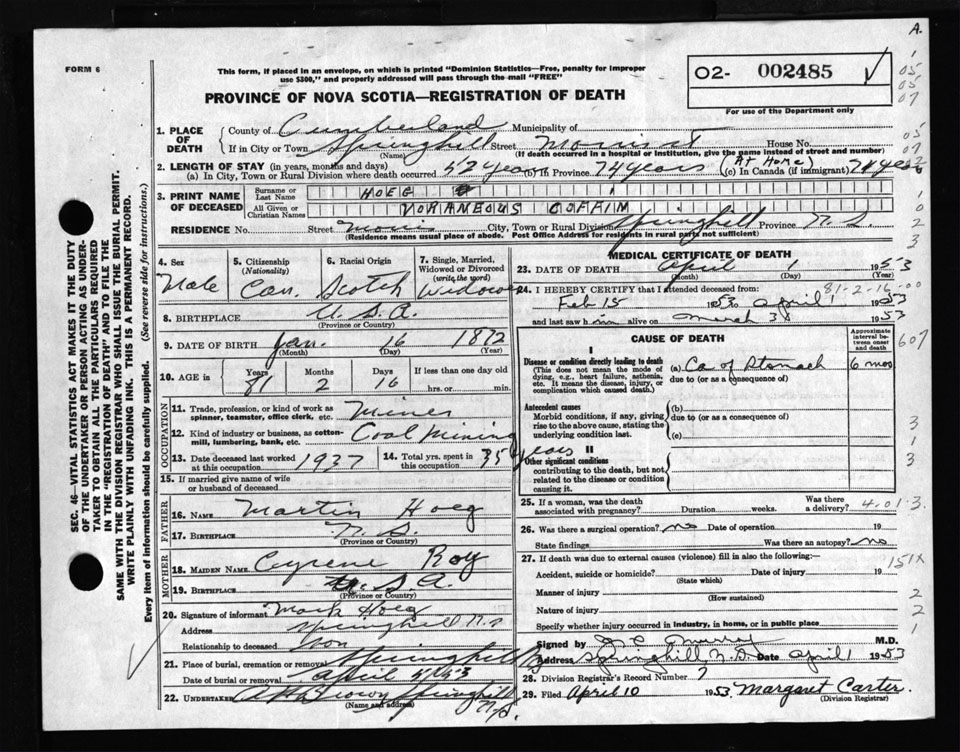 A.
FORM 6
This form, if placed in an envelope, on which is printed "Dominion Statistics—Free, penalty for improper
use $300," and properly addressed will pass through the mail "FREE"
02- 002485 ✓
For use of the Department only
PROVINCE OF NOVA SCOTIA—REGISTRATION OF DEATH
1. PLACE OF DEATH County of Cumberland Municipality of
If in City or Town Springhill (Name) Street Morris St House No.
(If death occurred in a hospital or Institution, give the name instead of street and number)
2. LENGTH OF STAY (in years, months and days) (At Home)
(a) In City, Town or Rural Division where death occurred 52 years (b) In Province 74 years (c) In Canada (if immigrant) 74 years
3. PRINT NAME OF DECEASED Surname or Last Name HOEG
All Given or Christian Names VORANEOUS COFFIM
RESIDENCE No. Street Morris City, Town or Rural Division Springhill Province N.S.
(Residence means usual place of abode. Post Office Address for residents in rural parts not sufficient)
4. Sex Male
5. Citizenship (Nationality) Can.
6. Racial Origin Scotch
7. Single, Married, Widowed or Divorced (write the word) Widower
8. BIRTHPLACE U.S.A. (Province or Country)
9. DATE OF BIRTH Jan. 16 1872
(Month) (Day) (Year)
10. AGE in Years 81 Months 2 Days 16 If less than one day hrs. or min.
OCCUPATION
11. Trade, profession, or kind of work as spinner, teamster, office clerk, etc. Miner
12. Kind of industry or business, as cotton-mill, lumbering, bank, etc. Coal Mining
13. Date deceased last worked at this occupation 1937
14. Total yrs. spent in this occupation 35 years
15. If married give name of wife or husband of deceased
FATHER
16. NAME Martin Hoeg
17. BIRTHPLACE N.S. (Province or Country)
MOTHER
18. MAIDEN NAME Cyrene Roy
19. BIRTHPLACE U.S.A. (Province or Country)
20. Signature of informant Mark Hoeg
Address Springhill N.S
Relationship to deceased Son
21. Place of burial, cremation or removal Springhill N.S.
Date of burial or removal April 4/53
22. UNDERTAKER A H Brown Springhill N.S.
(Name and address)
MEDICAL CERTIFICATE OF DEATH
23. DATE OF DEATH April 1 1953
(Month) (Day)
24. I HEREBY CERTIFY that I attended deceased from: 81-2-16-00
Feb 15 1953 April 1 1953
and last saw him alive on March 31 1953
CAUSE OF DEATH
Approximate interval between onset and death
I
Disease or condition directly leading to death (a) Ca of Stomach 6 mos
(This does not mean the mode of dying, e.g., heart failure, asthenia, etc. It means the disease, injury, or complication which caused death.)
due to (or as a consequence of)
Antecedent causes (b)
Morbid conditions, if any, giving rise to the above cause, stating the underlying condition last.
due to (or as a consequence of)
(c)
II
Other significant conditions
contributing to the death, but not related to the disease or condition causing it.
25. If a woman, was the death associated with pregnancy? Duration weeks. Was there a delivery? 4-01-3.
26. Was there a surgical operation? no Date of operation 19
State findings Was there an autopsy? no
27. If death was due to external causes (violence) fill in also the following:—
Accident, suicide or homicide? Date of injury 19
(State which)
Manner of injury
(How sustained)
Nature of injury
Specify whether injury occurred in industry, in home, or in public place
Signed by Murray M.D.
Address Springhill N.S. Date April 1 1953
28. Division Registrar's Record Number 7
29. Filed April 10 1953 Margaret Carter.
(Division Registrar)
SEC. 46—VITAL STATISTICS ACT MAKES IT THE DUTY
OF THE UNDERTAKER OR PERSON ACTING AS UNDER-
TAKER TO OBTAIN ALL THE PARTICULARS REQUIRED
IN THE "REGISTRATION OF DEATH" AND TO FILE THE
SAME WITH THE DIVISION REGISTRAR WHO SHALL ISSUE THE BURIAL PERMIT.
WRITE PLAINLY WITH UNFADING INK. THIS IS A PERMANENT RECORD.
Every item of information should be carefully supplied. (See reverse side for instructions.)
1
05
05
07
05
07
2
0
2
3
607
3
1
3
151X
2
2
1